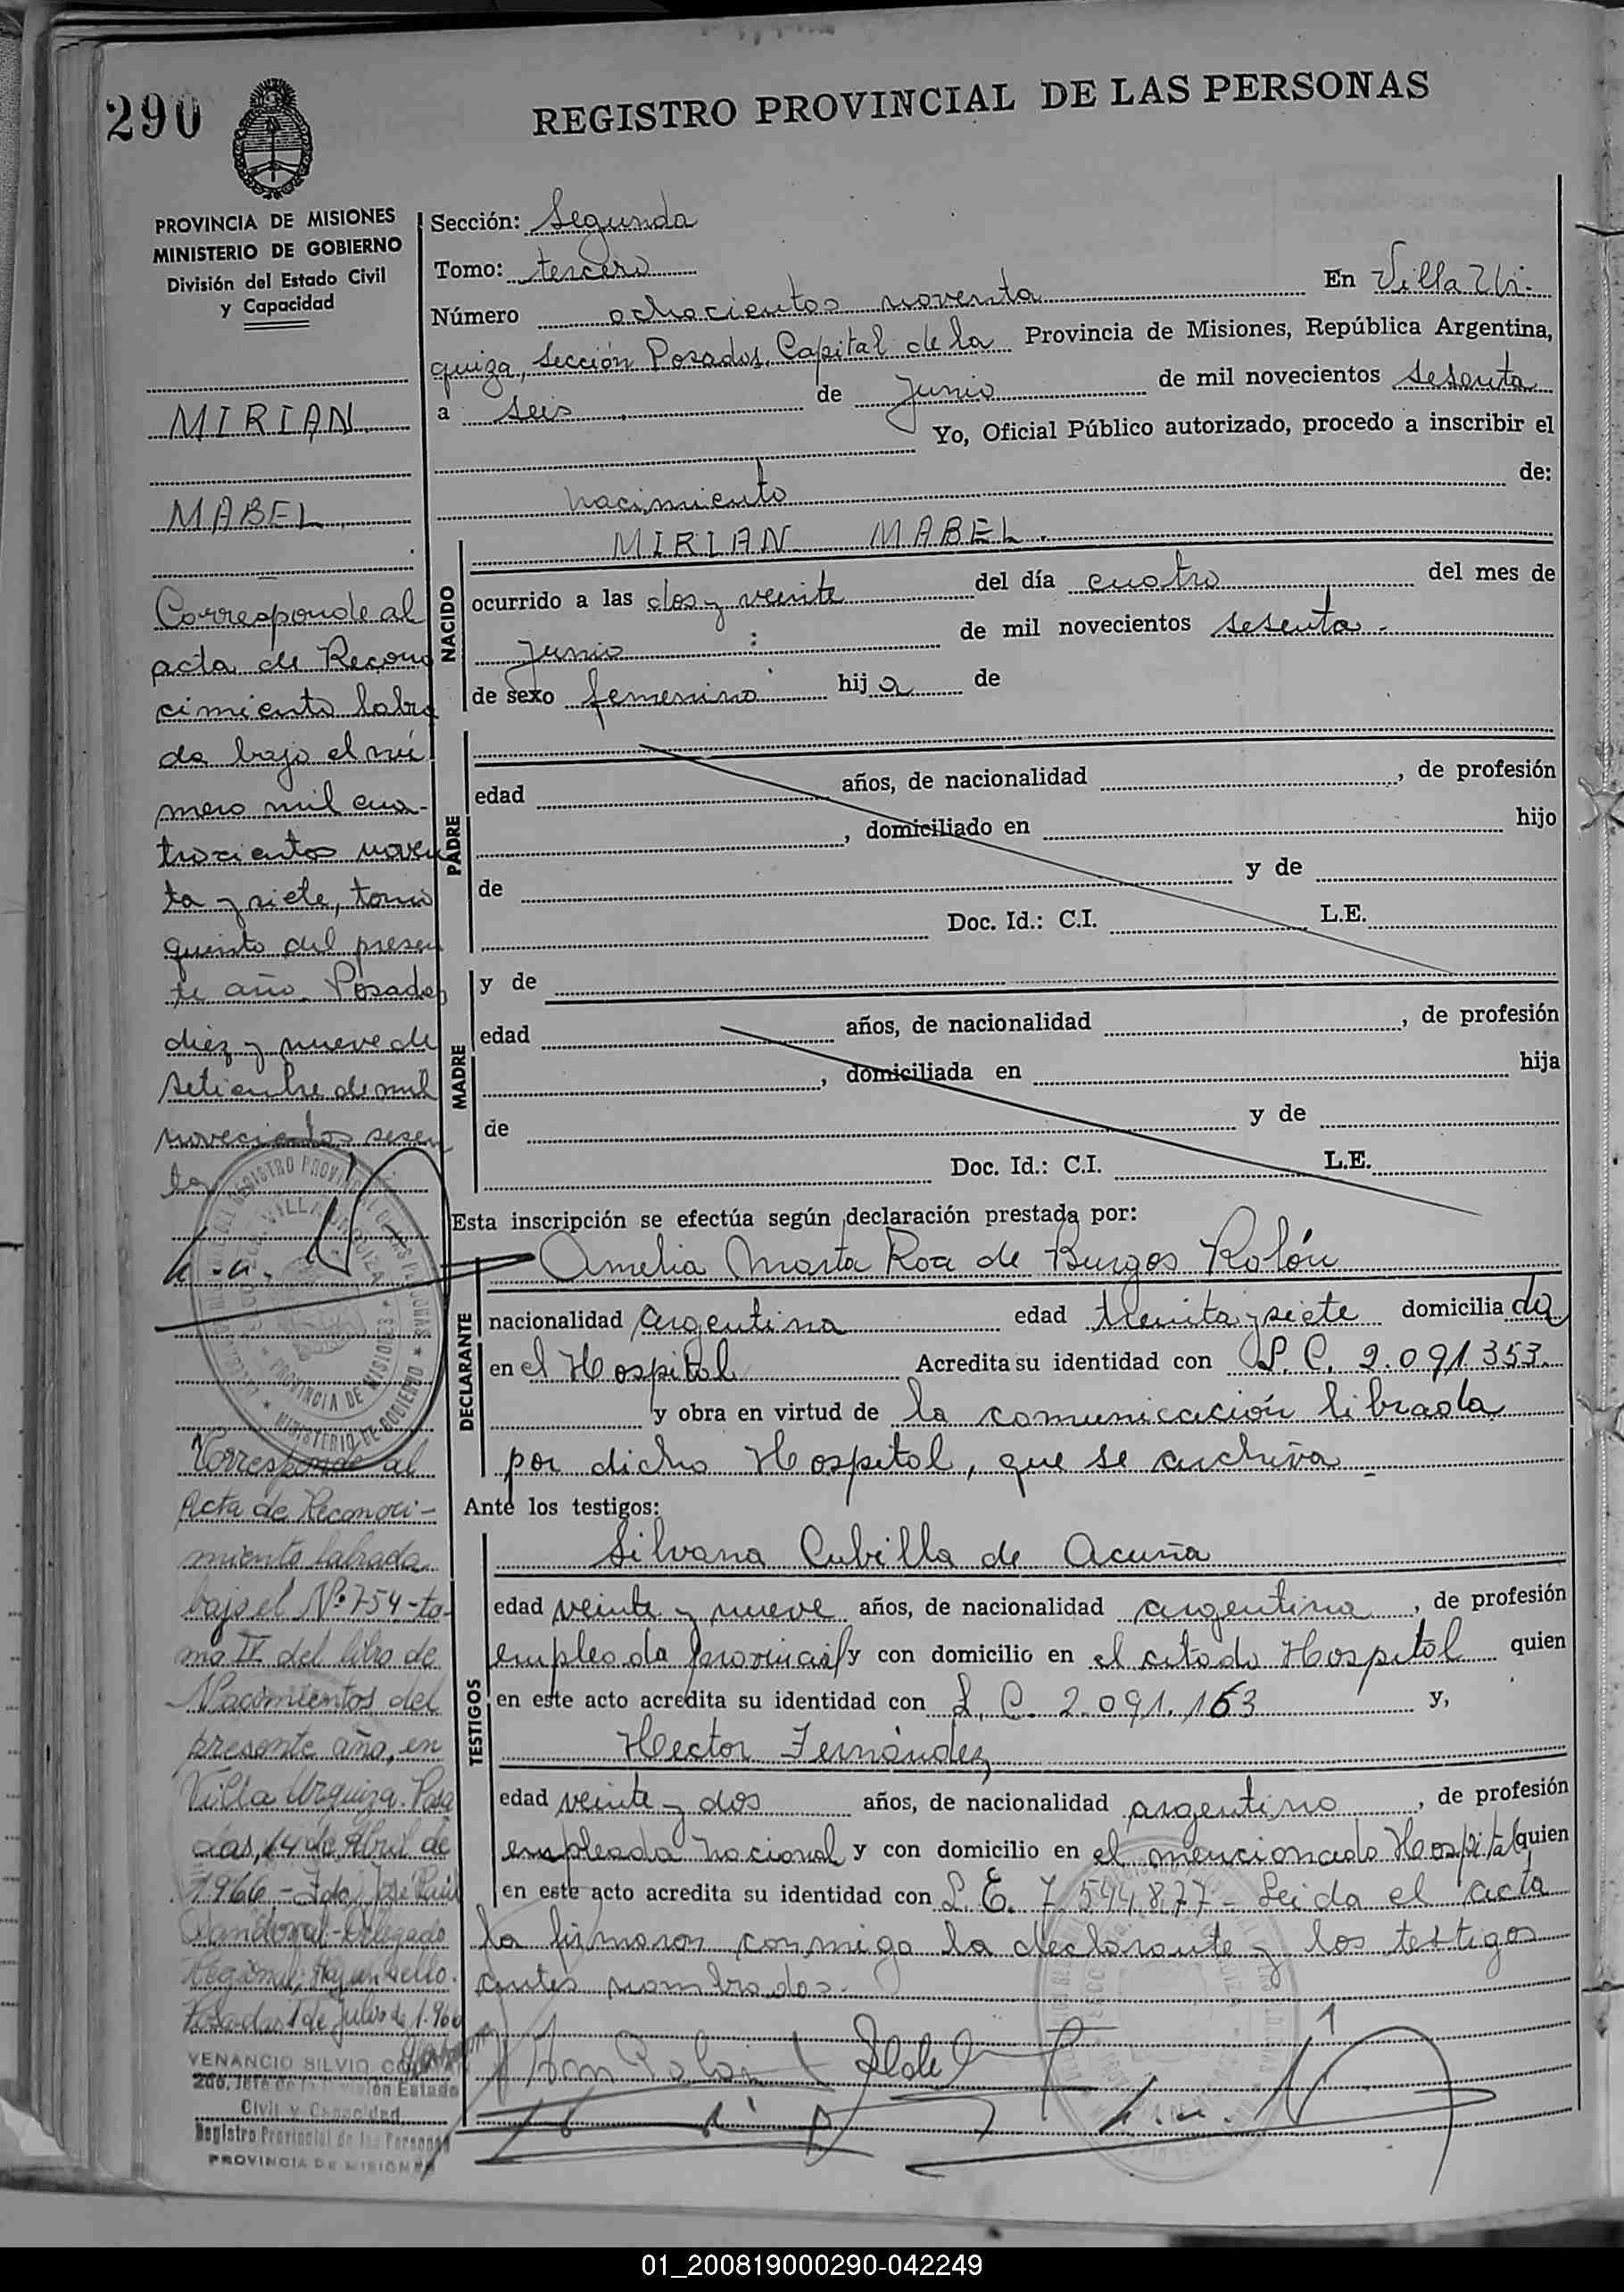 290
REGISTRO PROVINCIAL DE LAS PERSONAS
PROVINCIA DE MISIONES
MINISTERIO DE GOBIERNO
División del Estado Civil
y Capacidad
MIRIAN
MABEL
Corresponde al
acta de Recono
cimiento labra
da bajo el nú
mero mil cua-
trocientos noven
ta y siete, tomo
quinto del presen
te año. Posadas
diez y nueve de
setiembre de mil
novecientos sesen
ta
Corresponde al
Acta de Reconoci-
miento labrada
bajo el Nº 754-to-
mo IV del libro de
Nacimientos del
presente año, en
Villa Urquiza. Posa
das, 14 de Abril de
1966 - Fdo. José Raúl
Sandoval - Delegado
Regional; Hay un sello.
Posadas 1 de Julio de 1.966
VENANCIO SILVIO
2do. Jefe de la División Estado
Civil y Capacidad
Registro Provincial de las Personas
PROVINCIA DE MISIONES
Sección: Segunda
Tomo: tercero
Número ochocientos noventa En Villa Ur-
quiza, Sección Posadas, Capital de la Provincia de Misiones, República Argentina,
a seis de junio de mil novecientos sesenta
Yo, Oficial Público autorizado, procedo a inscribir el
nacimiento de:
NACIDO
MIRIAN MABEL.
ocurrido a las dos y veinte del día cuatro del mes de
junio de mil novecientos sesenta.-
de sexo femenino hija de
PADRE
edad años, de nacionalidad , de profesión
, domiciliado en hijo
de y de
Doc. Id.: C.I. L.E.
MADRE
y de
edad años, de nacionalidad , de profesión
, domiciliada en hija
de y de
Doc. Id.: C.I. L.E.
Esta inscripción se efectúa según declaración prestada por:
DECLARANTE
Amelia Marta Roa de Burgos Rolón
nacionalidad argentina edad treinta y siete domiciliada
en el Hospital Acredita su identidad con L.C. 2.091353.
y obra en virtud de la comunicación librada
por dicho Hospital, que se archiva -
Ante los testigos:
TESTIGOS
Silvana Cubilla de Acuña
edad veinte y nueve años, de nacionalidad argentina, de profesión
empleada provincial y con domicilio en el citado Hospital quien
en este acto acredita su identidad con L. C. 2.091.163 y,
Hector Fernández
edad veinte y dos años, de nacionalidad argentino, de profesión
empleado nacional y con domicilio en el mencionado Hospital quien
en este acto acredita su identidad con L.E. 7.594.877 - Leida el acta
la firmaron conmigo la declarante y los testigos
antes nombrados.-
01_200819000290-042249